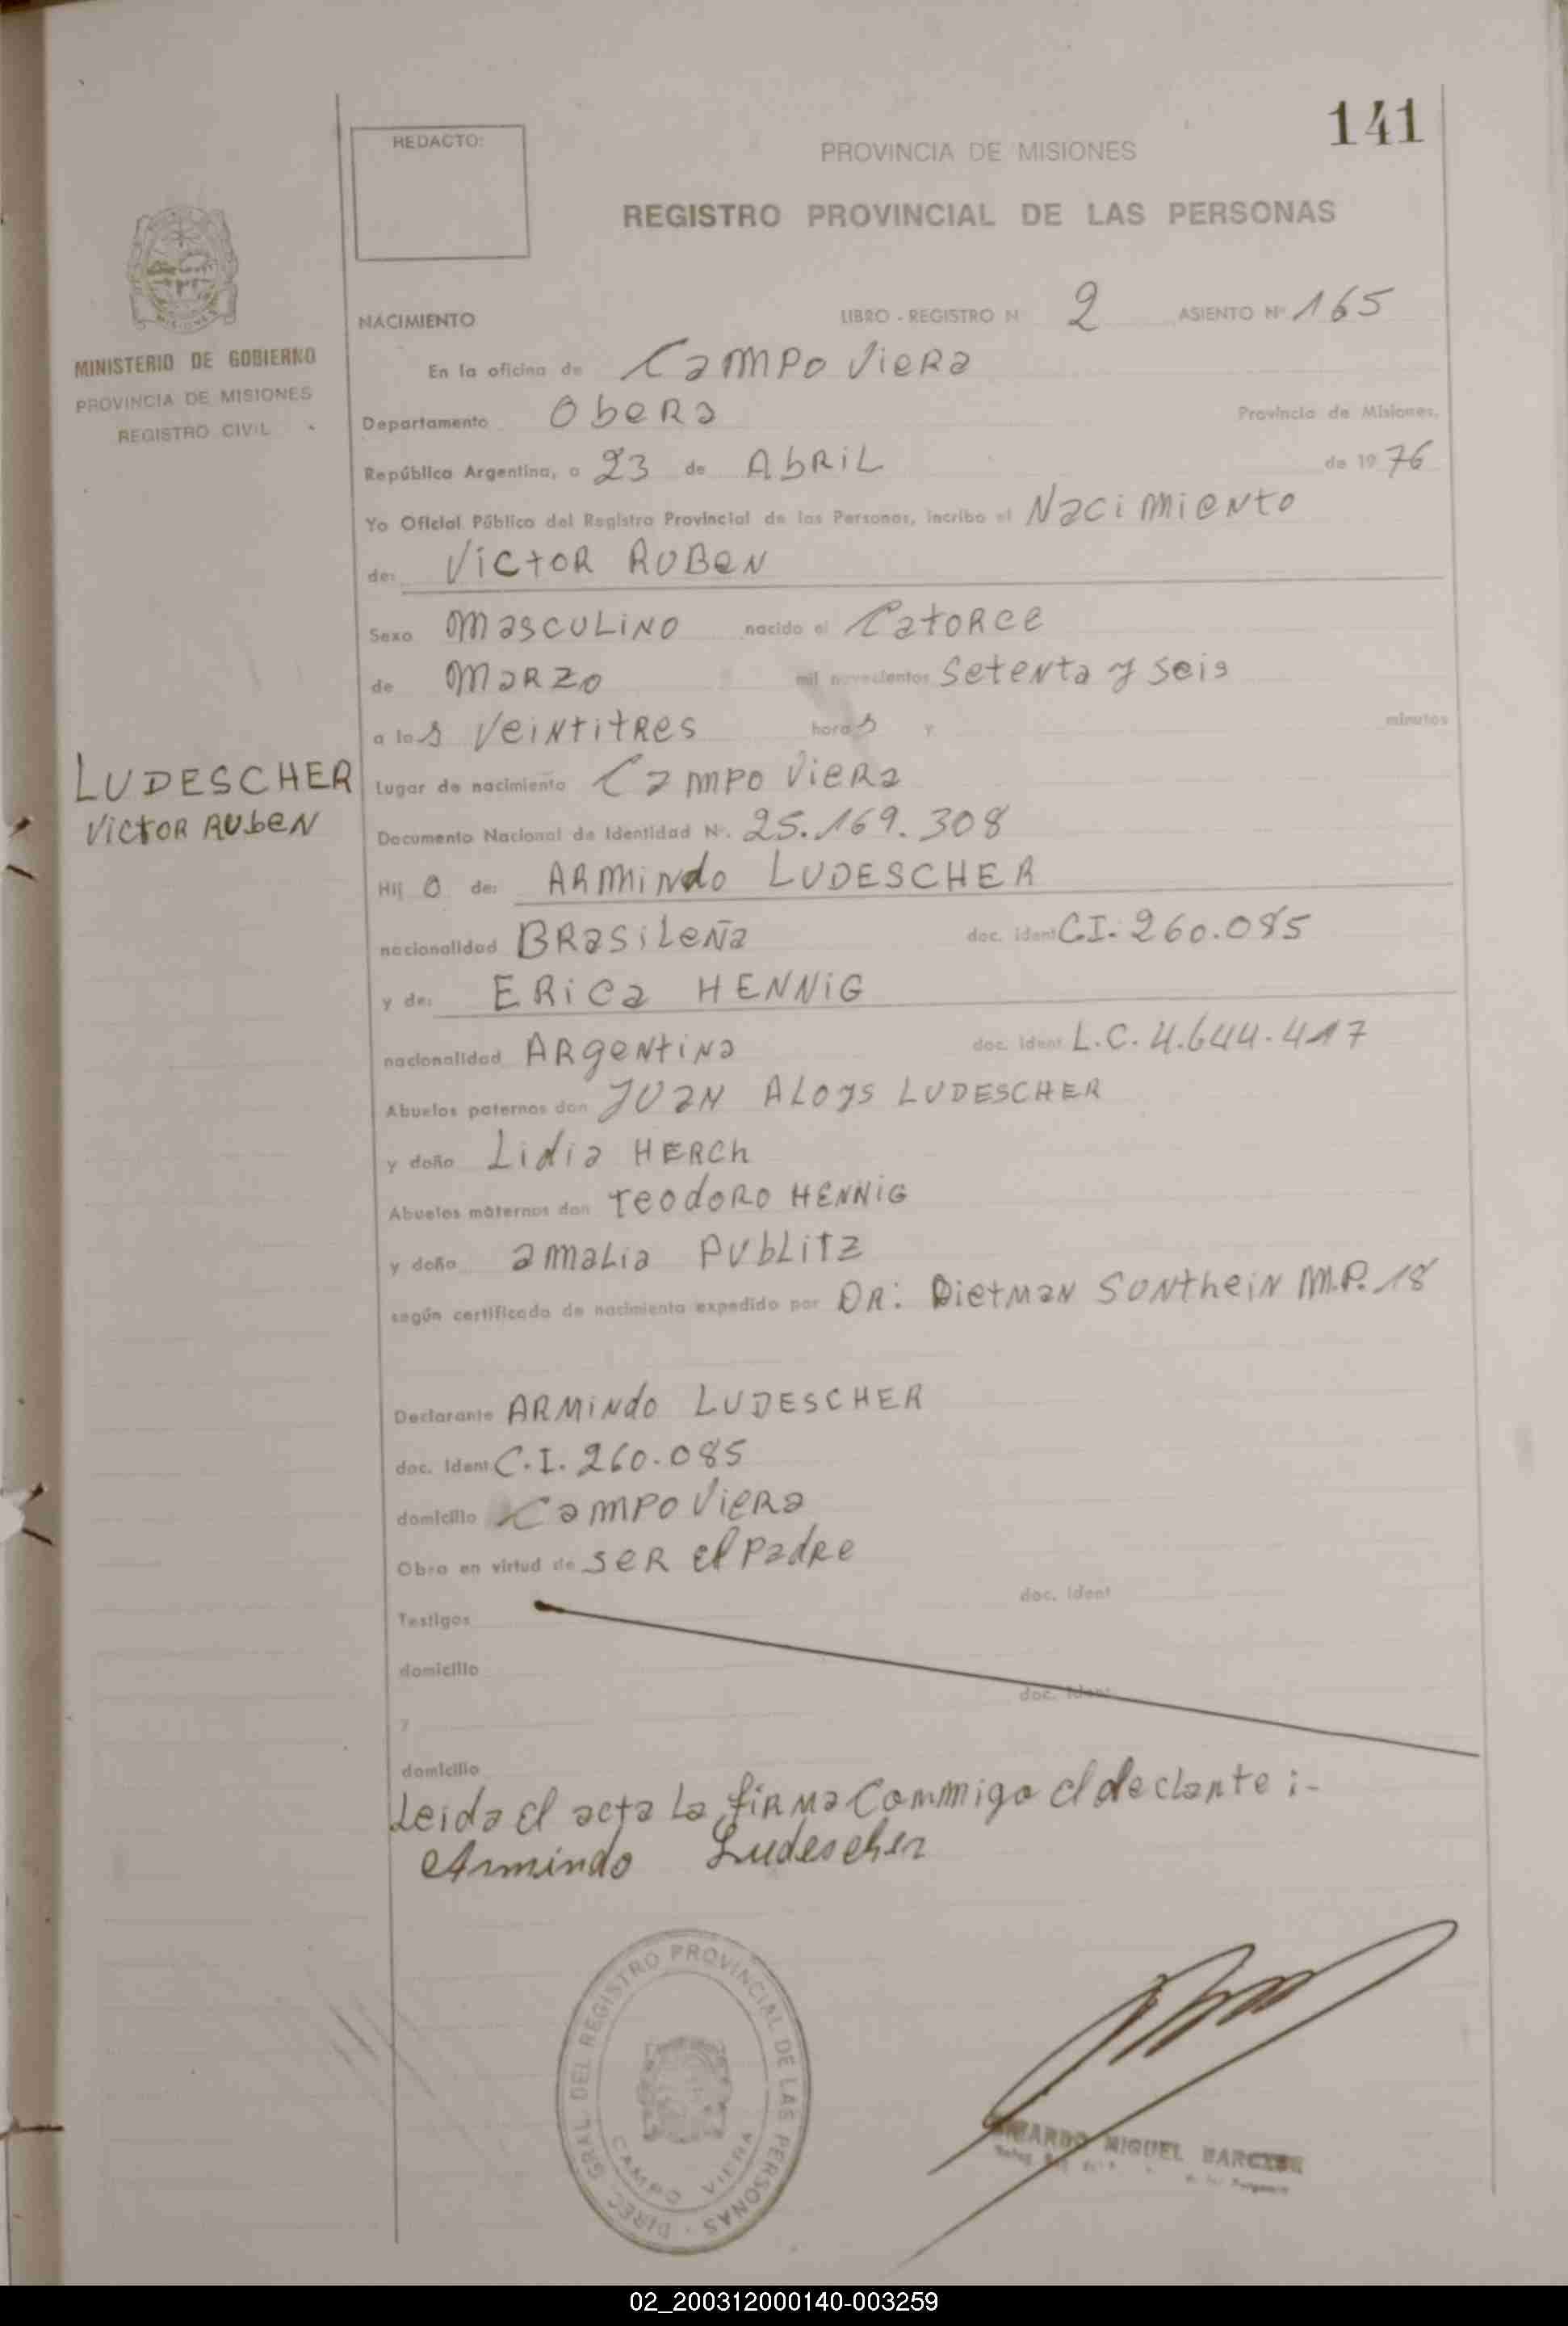 141
REDACTO:
PROVINCIA DE MISIONES
REGISTRO PROVINCIAL DE LAS PERSONAS
MINISTERIO DE GOBIERNO
PROVINCIA DE MISIONES
REGISTRO CIVIL
NACIMIENTO LIBRO - REGISTRO N 2 ASIENTO Nº 165
En la oficina de Campo Viera
Departamento Obera Provincia de Misiones,
República Argentina, a 23 de Abril de 1976
Yo Oficial Público del Registro Provincial de las Personas, incribo el Nacimiento
de: Victor Ruben
Sexo Masculino nacido el Catorce
de Marzo mil novecientos setenta y seis
a las veintitres horas y minutos
LUDESCHER
Victor Ruben
Lugar de nacimiento Campo Viera
Documento Nacional de Identidad Nº. 25.169.308
Hij o de: Armindo LUDESCHER
nacionalidad Brasileña doc. ident CI. 260.085
y de: Erica HENNIG
nacionalidad Argentina doc. ident L.C. 4.644.417
Abuelos paternos don Juan Aloys LUDESCHER
y doña Lidia HERCh
Abuelos maternos don Teodoro HENNIG
y doña amalia Publitz
según certificado de nacimiento expedido por DR: Dietman Sunthein M.P. 18
Declarante Armindo LUDESCHER
doc. Ident C.I. 260.085
domicilio Campo Viera
Obra en virtud de ser el Padre
doc. Ident
Testigos
domicilio
doc. Ident
y
domicilio
Leida el acta la firma Commigo el declante :-
Armindo Ludescher
DIREC. GRAL. DEL REGISTRO PROVINCIAL DE LAS PERSONAS
CAMPO VIERA
MIGUEL
02_200312000140-003259